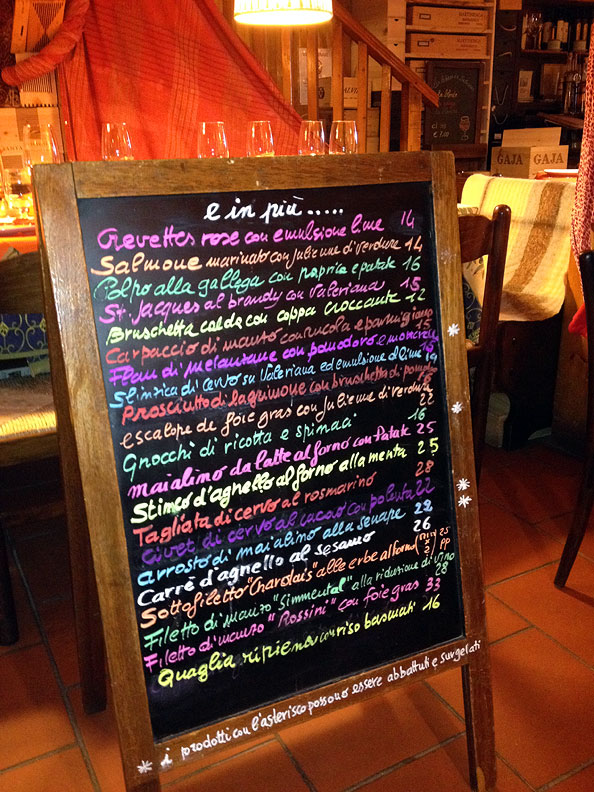 e in più .....
Crevettes rose con emulsione lime 14
Salmone marinato con julienne di verdure 14
Polpo alla gallega con paprica e patate 16
St. Jacques al brandy con valeriana 15
Bruschetta calda con coppa croccante 12
Carpaccio di manzo con rucola e parmigiano 15
Flan di melanzane con pomodoro e
Slinzica di cervo su valeriana ed emulsione d lime 19
Prosciutto di lagrimone con bruschetta di pomodoro
escalope de foie gras con julienne di verdura 22
Gnocchi di ricotta e spinaci 16
maialino da latte al forno con patate 25
Stinco d'agnello al forno alla menta 25
Tagliata di cervo al rosmarino 28
Civet di cervo al cacao con polenta 22
arrosto di maialino alla senape 22
Carrè d'agnello al sesamo 26
Sottofiletto "Charolais" alle erbe al forno (min x 2) 25 pp
Filetto di manzo "Simmental" alla riduzione di vino 28
Filetto di manzo "Rossini" con foie gras 33
Quaglia ripiena con riso basmati 16
* i prodotti con l'asterisco possono essere abbattuti e surgelati
GAJA GAJA